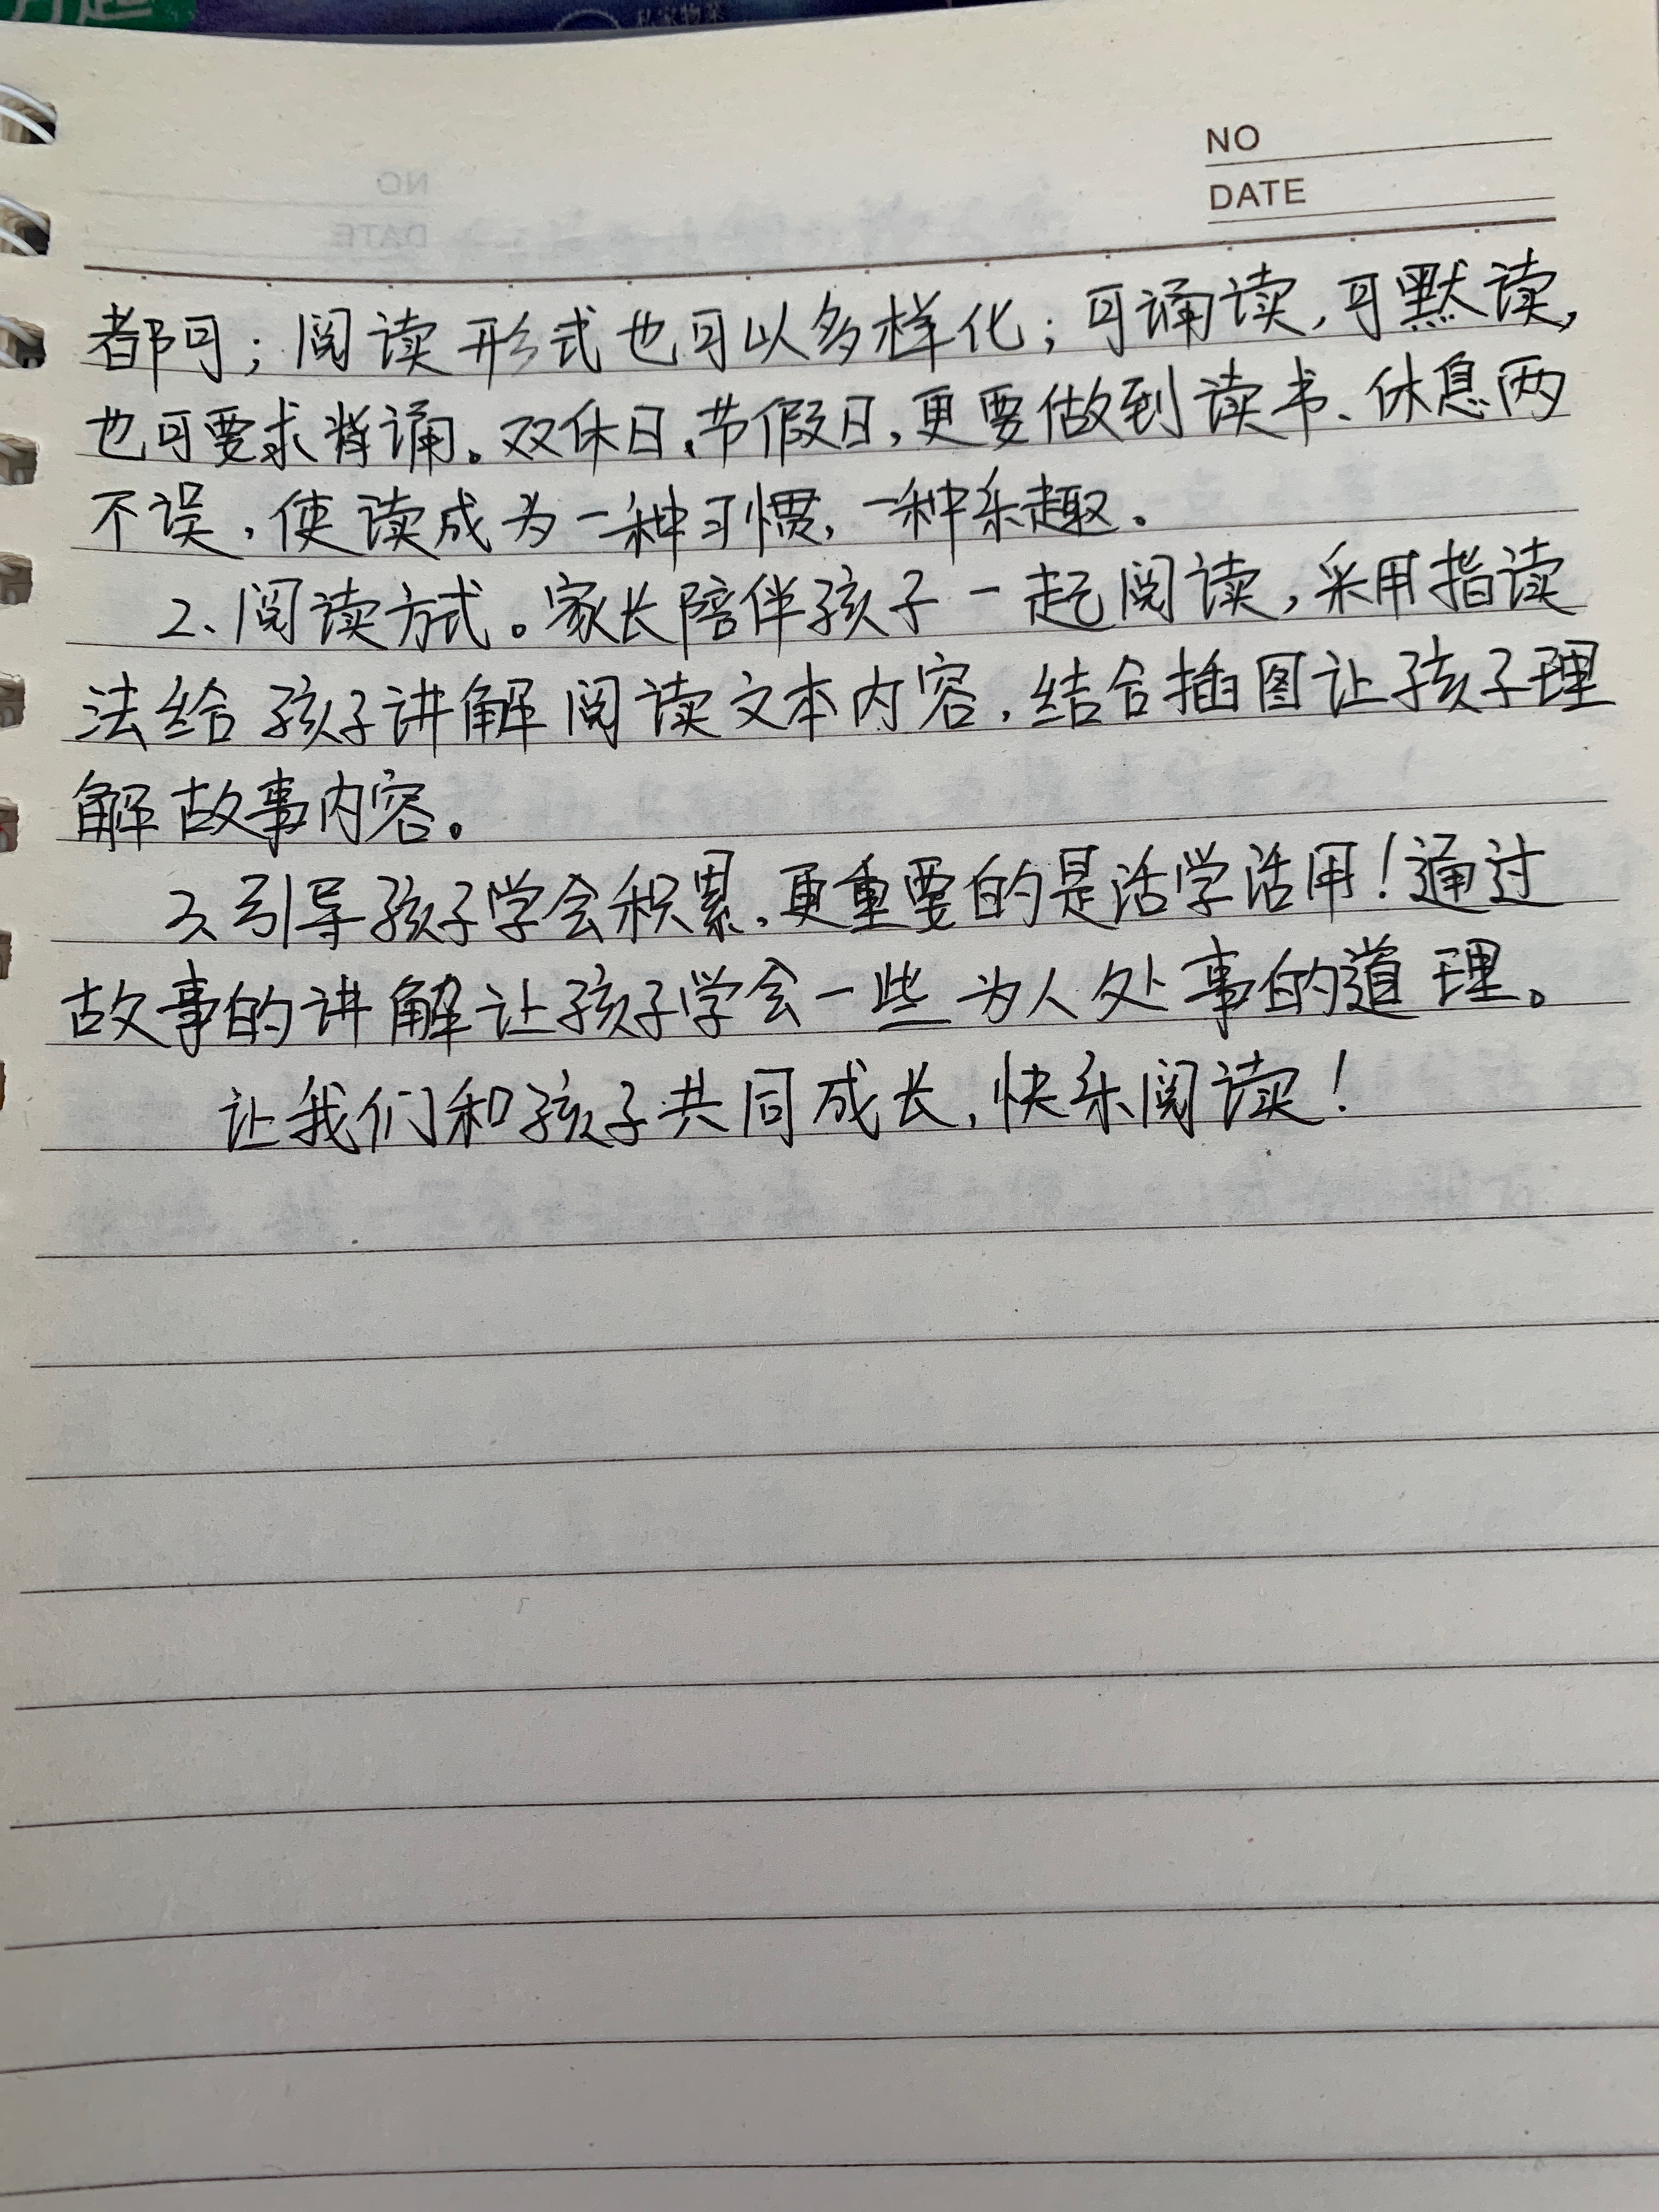 私家物菜
NO
DATE
都可；阅读形式也可以多样化；可诵读，可默读，
也可要求背诵。双休日、节假日，更要做到读书、休息两
不误，使读成为一种习惯，一种乐趣。
2、阅读方式。家长陪伴孩子一起阅读，采用指读
法给孩子讲解阅读文本内容，结合插图让孩子理
解故事内容。
3、引导孩子学会积累，更重要的是活学活用！通过
故事的讲解让孩子学会一些为人处事的道理。
让我们和孩子共同成长，快乐阅读！